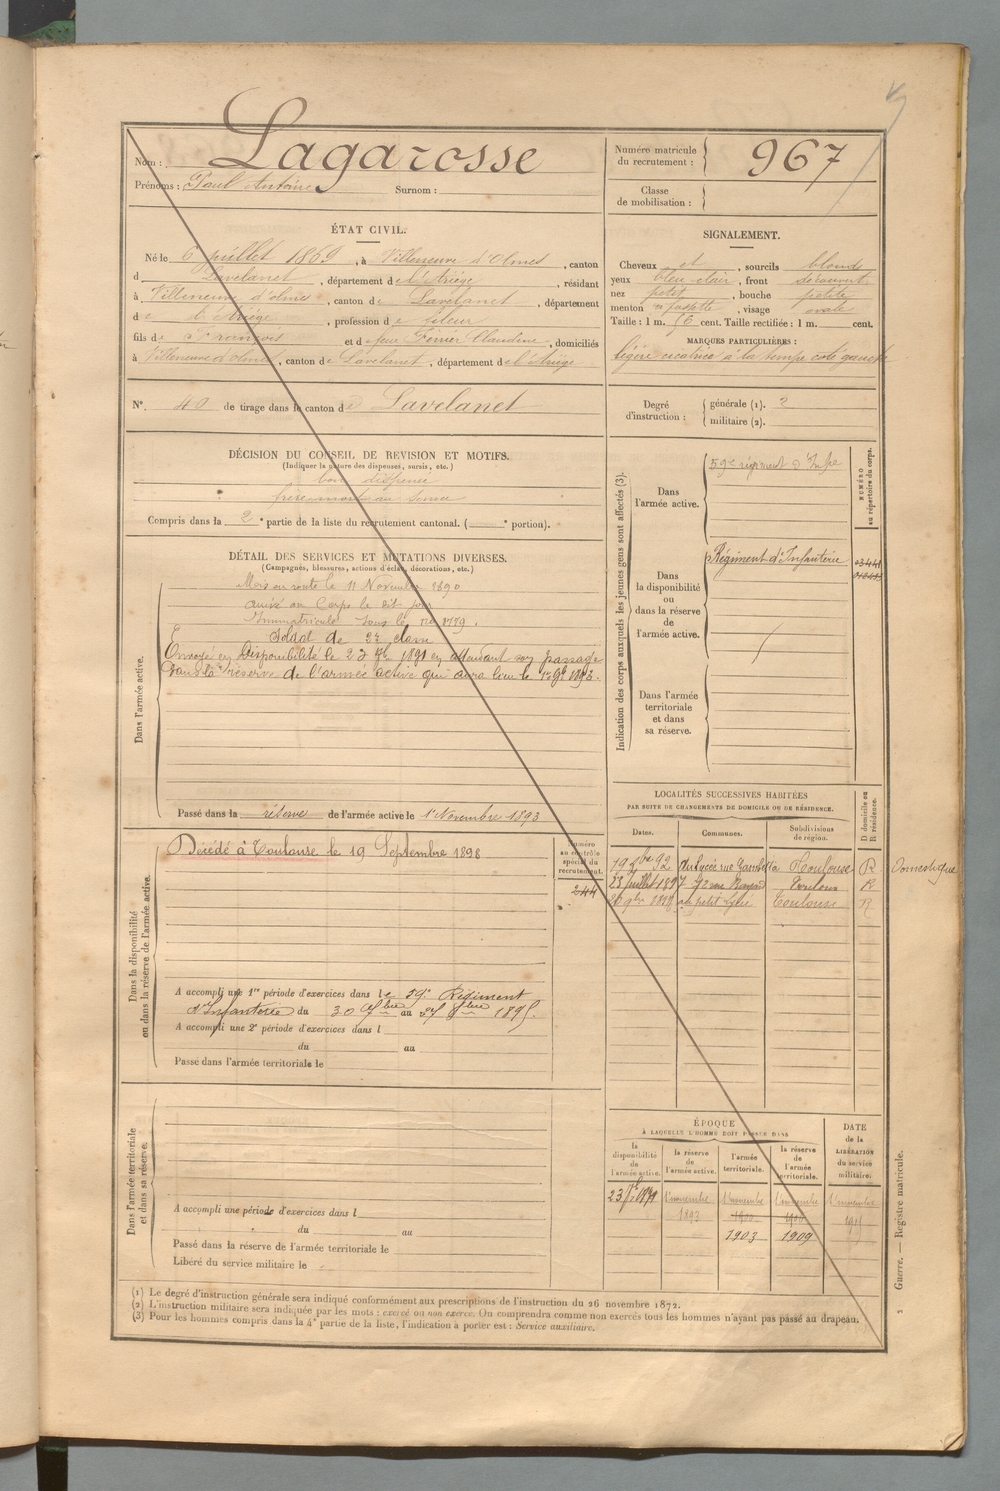 Nom : Lagarosse
Prénoms : Paul Antoine Surnom :
Numéro matricule
du recrutement : 967
Classe
de mobilisation :
ÉTAT CIVIL.
Né le 6 juillet 1869, à Villeneuve d'Olmes, canton
d Lavelanet, département de l'Ariège, résidant
à Villeneuve d'olmes, canton de Lavelanet, département
de l'Ariège, profession de fileur
fils de François et de feue Ferrier Claudine, domiciliés
à Villeneuve d'olmes, canton de Lavelanet, département de l'Ariège
N°. 40 de tirage dans le canton de Lavelanet
SIGNALEMENT.
Cheveux et, sourcils blonds
yeux bleu clair, front découvert
nez petit, bouche petite
menton à fossette, visage ovale
Taille : 1 m. 56 cent. Taille rectifiée : 1 m. cent.
MARQUES PARTICULIÈRES :
légère cicatrice à la tempe côté gauche
Degré
d'instruction : générale (1). 2
militaire (2).
DÉCISION DU CONSEIL DE REVISION ET MOTIFS.
(Indiquer la nature des dispenses, sursis, etc.)
bon dispensé
frère mort au service
Compris dans la 2e partie de la liste du recrutement cantonal. ( e portion).
DÉTAIL DES SERVICES ET MUTATIONS DIVERSES.
(Campagnes, blessures, actions d'éclat, décorations, etc.)
Dans l'armée active.
Mis en route le 11 Novembre 1890
arrivé au Corps le dit jour
Immatriculé sous le no 1779.
Soldat de 2e classe
Envoyé en Disponibilité le 23 7bre 1891 en attendant son passage
dans la réserve de l'armée active qui aura lieu le 1er 9bre 1893.
Passé dans la réserve de l'armée active le 1er Novembre 1893
Indication des corps auxquels les jeunes gens sont affectés (3).
NUMÉRO
au répertoire du corps.
Dans
l'armée active.
59e régiment d'Infie
Dans
la disponibilité
ou
dans la réserve
de
l'armée active.
Régiment d'Infanterie
Dans l'armée
territoriale
et dans
sa réserve.
Dans la disponibilité
ou dans la réserve de l'armée active.
Décédé à Toulouse le 19 Septembre 1898
Numéro
au contrôle
spécial du
recrutement.
244
A accompli une 1re période d'exercices dans le 59e Régiment
d'Infanterie du 30 7bre au 27 8bre 1895.
A accompli une 2e période d'exercices dans l
du au
Passé dans l'armée territoriale le
LOCALITÉS SUCCESSIVES HABITÉES
PAR SUITE DE CHANGEMENTS DE DOMICILE OU DE RÉSIDENCE.
D domicile ou
R résidence.
Dates. Communes. Subdivisions
de région.
19 bre 92 du Lycée rue Gambetta Toulouse R Domestique
23 Juillet 1897 72 rue Toulouse R
26 9bre 1897 au petit Lycée Toulouse R
Dans l'armée territoriale
et dans sa réserve.
A accompli une période d'exercices dans l
du au
Passé dans la réserve de l'armée territoriale le
Libéré du service militaire le
ÉPOQUE
À LAQUELLE L'HOMME DOIT PASSER DANS
DATE
de la
LIBÉRATION
du service
militaire.
la
disponibilité
de
l'armée active.
la réserve
de
l'armée active.
l'armée
territoriale.
la réserve
de
l'armée
territoriale.
23 7bre 1891 1er novembre 1er novembre 1er novembre 1er novembre
1893 1900 1906 1915
1903 1909
Guerre. — Registre matricule.
(1) Le degré d'instruction générale sera indiqué conformément aux prescriptions de l'instruction du 26 novembre 1872.
(2) L'instruction militaire sera indiquée par les mots : exercé ou non exercé. On comprendra comme non exercés tous les hommes n'ayant pas passé au drapeau.
(3) Pour les hommes compris dans la 4e partie de la liste, l'indication à porter est : Service auxiliaire.